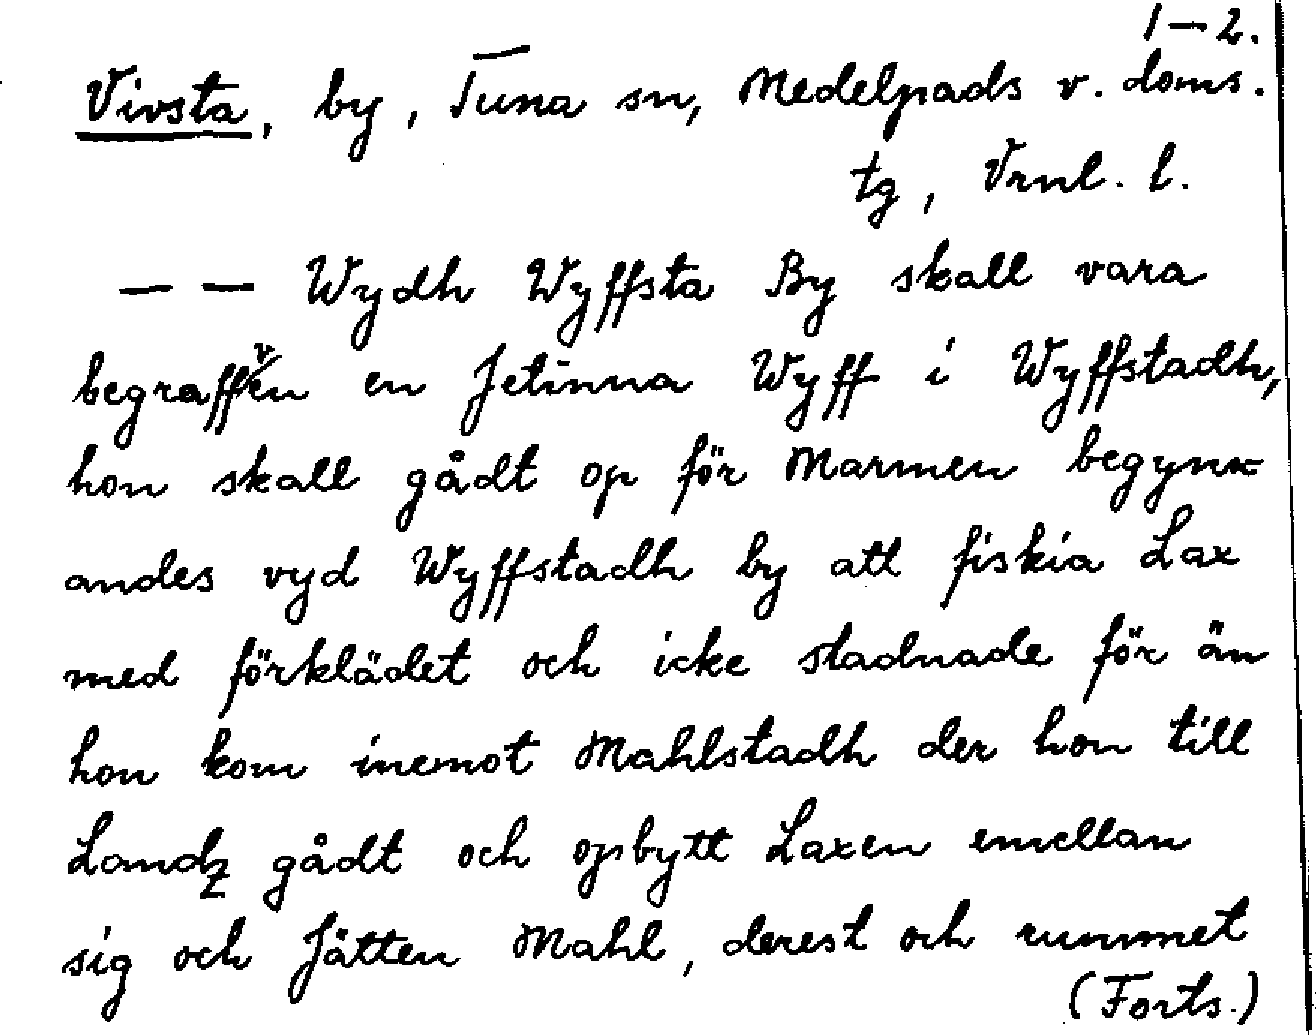 1–2.
Vivsta, by, Tuna sn, Medelpads v. doms.
tg, Vrnl. l.
— — Wydh Wyffsta By skall vara
begraffven en Jetinna Wyff i Wyffstadh,
hon skall gådt op för Marmen begynn-
andes vyd Wyffstadh by att fiskia Lax
med förklädet och icke stadnade för än
hon kom inemot Mahlstadh der hon till
Landz gådt och opbytt Laxen emellan
sig och Jätten Mahl, derest och rummet
(Forts.)